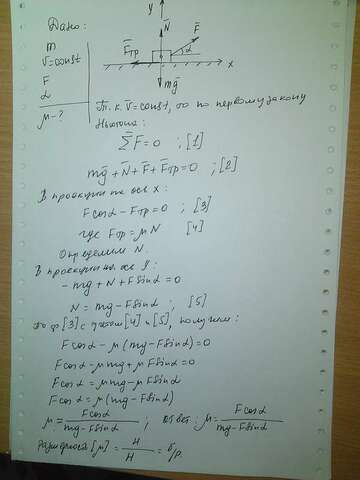 Дано:
m
v̄=const
F
α
μ-?
y
N̄
F̄
F̄тр
α
x
mḡ
Т.к. v̄=const, то по первому закону
Ньютона:
ΣF̄=0 ; [1]
mḡ+N̄+F̄+F̄тр=0 ; [2]
В проекции на ось x:
Fcosα-Fтр=0 ; [3]
где Fтр=μN [4]
Определим N.
В проекции на ось y:
-mg+N+Fsinα=0
N=mg-Fsinα; [5]
[3] с учётом [4] и [5], получим:
Fcosα-μ(mg-Fsinα)=0
Fcosα-μmg+μFsinα=0
Fcosα=μmg-μFsinα
Fcosα=μ(mg-Fsinα)
μ=Fcosα/(mg-Fsinα) ; Ответ: μ=Fcosα/(mg-Fsinα)
размерность [μ]=Н/Н=б/р.